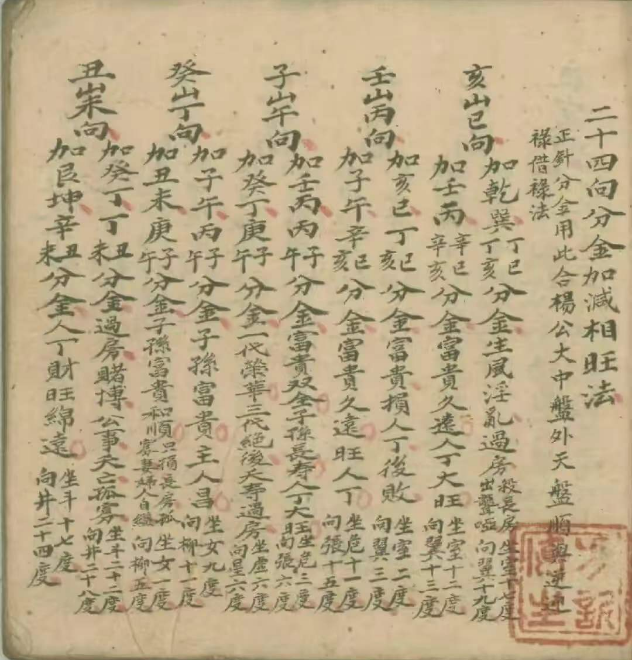 二十四向分金加減相旺法
正針分金用此合楊公大中盤外天盤順與逆
祿借祿法
亥山巳向
加乾巽丁巳丁亥分金生風淫亂過房殺長房出聾啞坐室十七度向翼十九度
加壬丙辛巳辛亥分金富貴久遠人丁大旺坐室十二度向翼十三度
壬山丙向
加亥巳丁巳亥分金富貴損人丁後敗坐室二度向翼三度
加子午辛巳亥分金富貴久遠旺人丁坐危十一度向張十五度
子山午向
加壬丙丙子午分金富貴双全子孫長寿人丁大旺坐危三度向張六度
加癸丁庚子午分金一代榮華三代絕後夭寿過房坐虛六度向星六度
癸山丁向
加子午丙子午分金子孫富貴主人昌坐女九度向柳十一度
加丑未庚子午分金子孫富貴和順只損長房孤寡婦人自縊坐女一度向柳五度
丑山未向
加癸丁丁丑未分金過房賭博公事夭亡孤寡坐斗二十二度向井二十八度
加艮坤辛丑未分金人丁財旺綿遠坐斗十七度向井二十四度